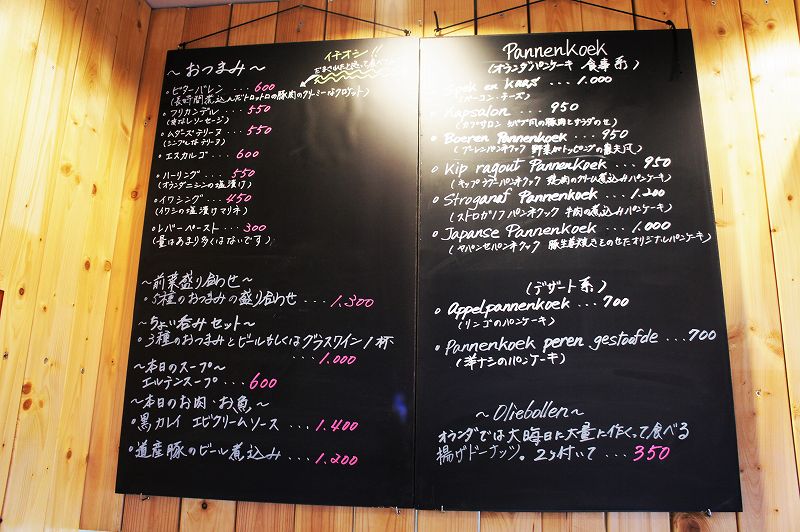 ～おつまみ～
イチオシ!!
・ビターバレン ... 600
(長時間煮込んだトロットロの豚肉のクリーミーなクロケット)
・フリカンデル ... 550
(皮なしソーセージ)
・ムダーズテリーヌ ... 550
(シンプルなテリーヌ)
・エスカルゴ ... 600
・ハーリング ... 550
(オランダニシンの塩漬け)
・イワシング ... 450
(イワシの塩漬けマリネ)
・レバーペースト ... 300
(量はあまり多くはないです)
～前菜盛り合わせ～
・5種のおつまみの盛り合わせ ... 1.300
～ちょい呑みセット～
・3種のおつまみとビールもしくはグラスワイン1杯
... 1.000
～本日のスープ～
エルテンスープ ... 600
～本日のお肉・お魚～
・黒カレイ エビクリームソース ... 1.400
・道産豚のビール煮込み ... 1.200
Pannenkoek
(オランダパンケーキ 食事系)
・Spek en Kaas ... 1.000
(ベーコン・チーズ)
・Kapsalon ... 950
(カプサロン ケバブ風の豚肉とサラダのせ)
・Boeren Pannenkoek ... 950
(ブーレンパンネクック 野菜がトッピングの農夫風)
・Kip ragout Pannenkoek ... 950
(キップラグーパンネクック 鶏肉のクリーム煮込みパンケーキ)
・Stroganof Pannenkoek ... 1.200
(ストロガノフパンネクック 牛肉の煮込みパンケーキ)
・Japanse Pannenkoek ... 1.000
(ヤパンセパンネクック 豚生姜焼きをのせたオリジナルパンケーキ)
(デザート系)
・Appelpannenkoek ... 700
(リンゴのパンケーキ)
・Pannenkoek peren gestoofde ... 700
(洋ナシのパンケーキ)
～Oliebollen～
オランダでは大晦日に大量に作くって食べる
揚げドーナッツ。2ヶ付いて ... 350